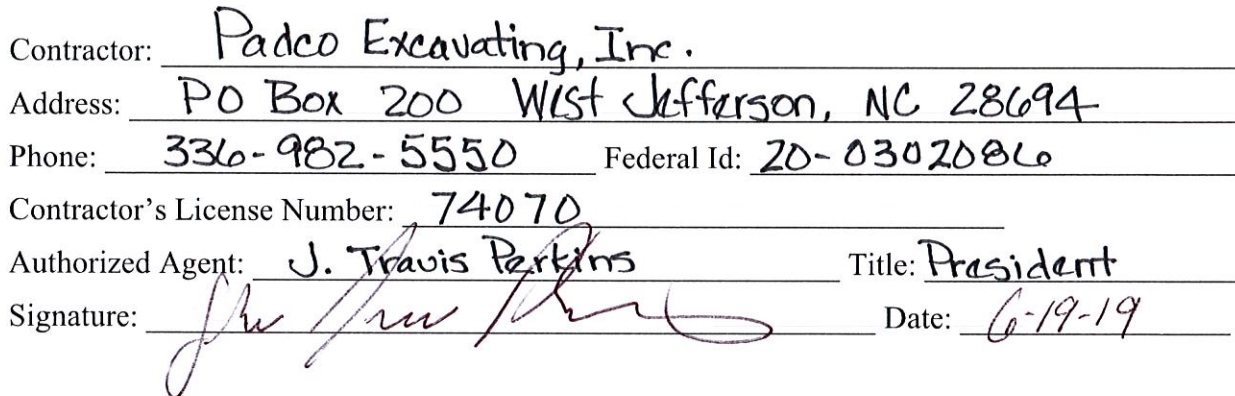 Contractor: Padco Excavating, Inc.
Address: PO Box 200 West Jefferson, NC 28694
Phone: 336-982-5550 Federal Id: 20-0302086
Contractor's License Number: 74070
Authorized Agent: J. Travis Perkins Title: President
Signature: Date: 6-19-19